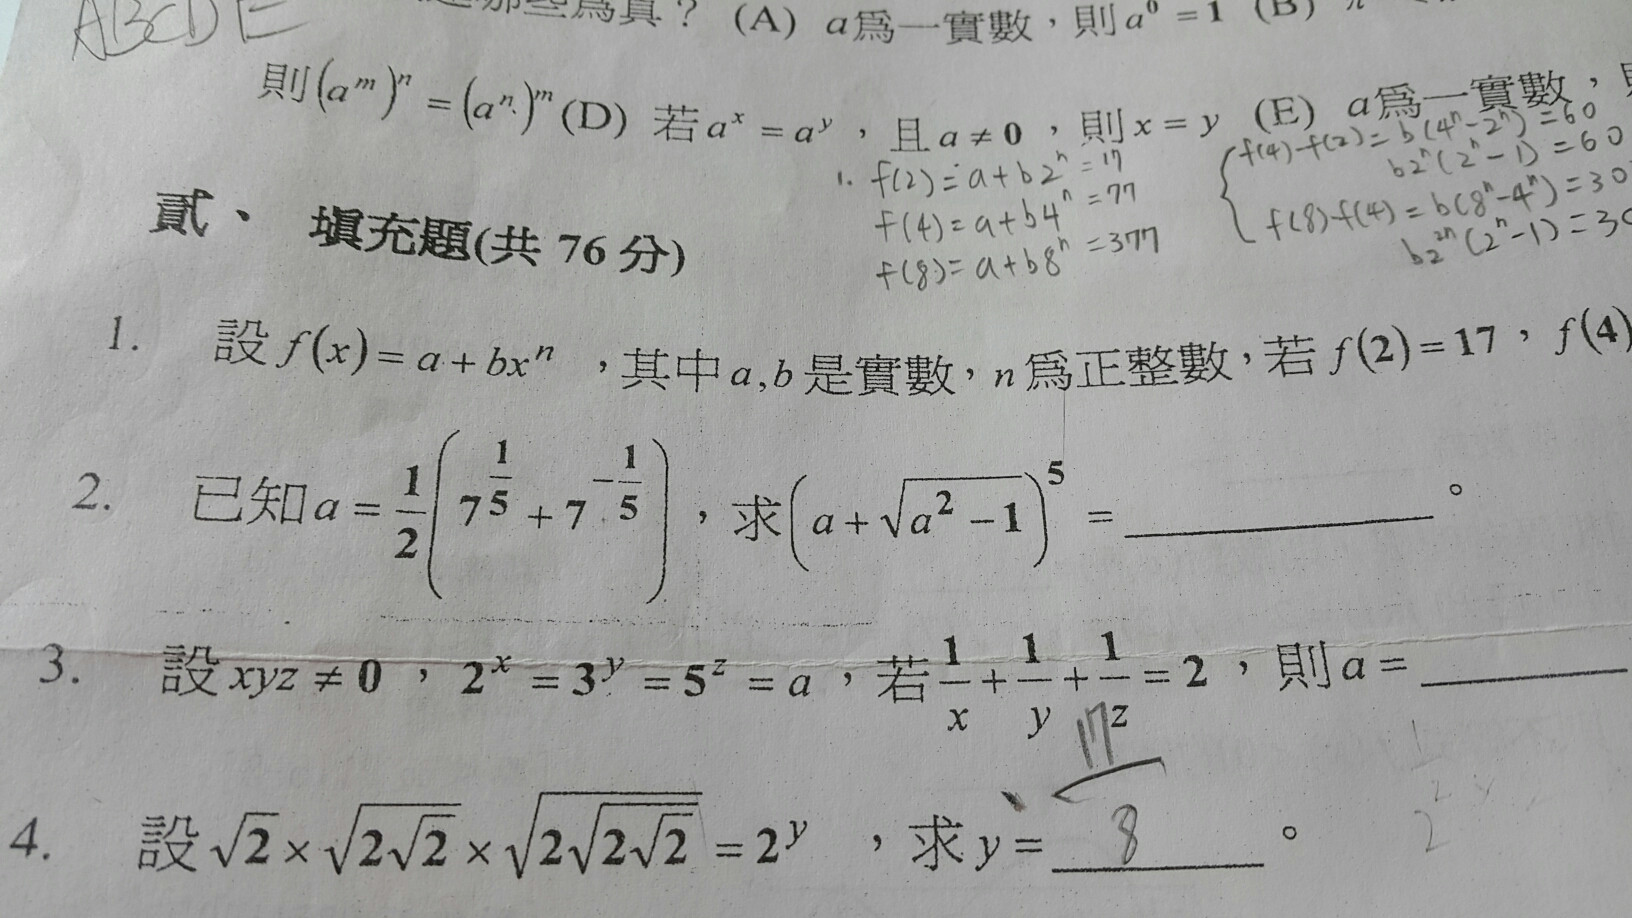 ABCDE
(A) a為一實數,則a⁰ = 1 (B)
則(aᵐ)ⁿ = (aⁿ)ᵐ (D) 若aˣ = aʸ,且a ≠ 0,則x = y (E) a為一實數,
1. f(2) = a + b2ⁿ = 17
f(4) = a + b4ⁿ = 77
f(8) = a + b8ⁿ = 377
f(4) - f(2) = b(4ⁿ - 2ⁿ) = 60
b2ⁿ(2ⁿ - 1) = 60
f(8) - f(4) = b(8ⁿ - 4ⁿ) = 30
b2²ⁿ(2ⁿ - 1) = 30
貳、 填充題(共 76 分)
1. 設 f(x) = a + bxⁿ ,其中 a,b 是實數,n 為正整數,若 f(2) = 17,f(4)
2. 已知 a = 1/2(7^(1/5) + 7^(-1/5)),求(a + √(a² - 1))⁵ = ________。
3. 設 xyz ≠ 0,2ˣ = 3ʸ = 5ᶻ = a,若 1/x + 1/y + 1/z = 2,則 a = ________
4. 設 √2 × √(2√2) × √(2√(2√2)) = 2ʸ ,求 y = 17/8 。